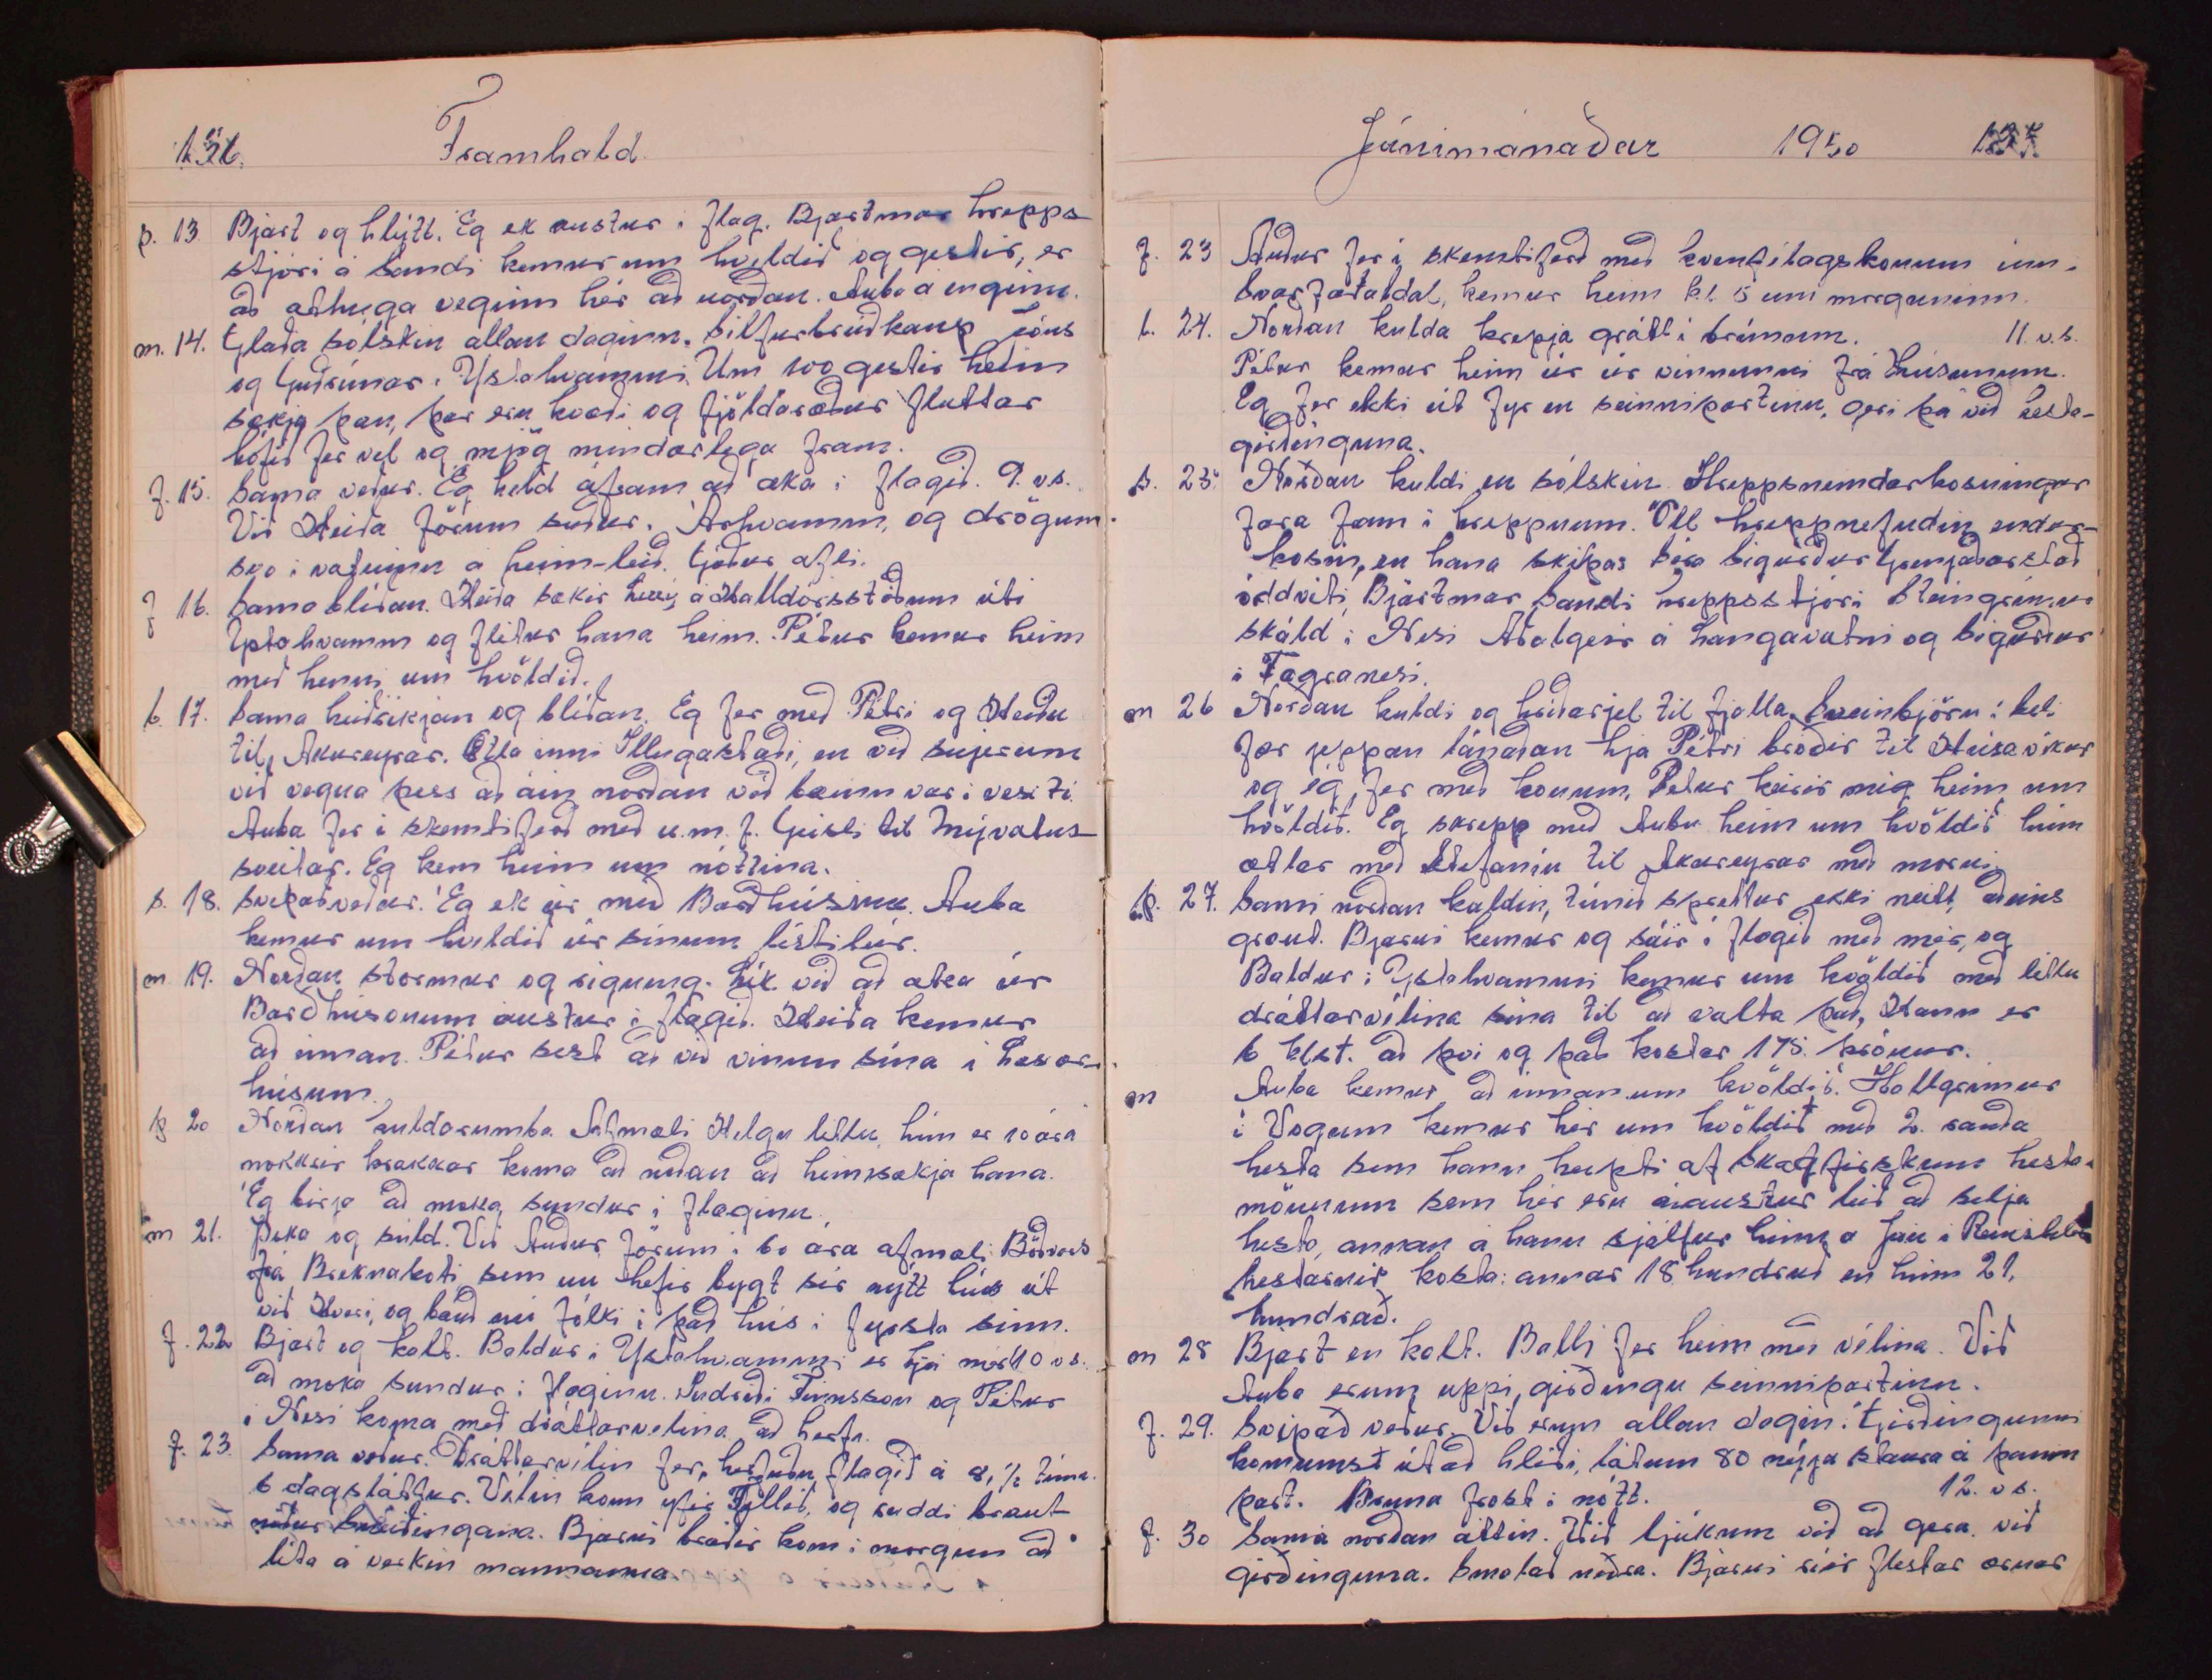 Framhald
þ. 13 Bjart og hlýtt. Eg ek austur í flag. Bjartmar hrepps
stjóri á Sandi kemur um kveldið og gestir, er
að athuga veginn hér að norðan. Auba á enginu.
m. 14. Glaða sólskin allan daginn. Silfurbrúðkaup Jóns
og Guðrúnar í Ystahvammi. Um 100 gestir heim
sækja þau, þar eru kvæði og fjöldaræður fluttar
hófið fer vel og mjög mindarlega fram.
f. 15. Sama veður. Eg held áfram að aka í flagið. 9. v s.
Við Heiða förum suður í Árhvamm, og drögum
svo í vatninu á heim-leið. Góður afli.
f 16. Sama blíðan. Heiða sækir á Halldórsstöðum úti
Ystahvamm og flitur hana heim. Pétur kemur heim
með henni um kvöldið.
l. 17. Sama heiðríkjan og blíðan. Eg fer með Pétri og Heiðu
til Akureyrar. Illugastaði, en við snjerum
við vegna þess að áin norðan við bæinn var í vexti
Auba fer í skemtiferð með u.m.f. Geisli til Mývatns-
sveitar. Eg kem heim um nóttina.
s. 18. Svipað veður. Eg ek úr með Barðhúsinu. Auba
kemur um kveldið úr sínum listitúr.
m. 19. Norðan stormur og rigning. Lík við að aka úr
Barðhúsonum austur í flagið. Heiða kemur
að innan. Pétur sest að við vinnu sína í Laxár-
húsum.
þ 20 Norðan kuldarumba. Afmæli Helgu litlu, hún er 10 ára
nokkrir krakkar koma að neðan að heimsækja hana.
Eg birja að moka sundur í flaginu.
m 21. Þoka og súld. Við Auður förum í 60 ára afmæli Böðvars
frá Brekknakoti sem nú hefir bygt sér nýtt hús út
við Hveri, og bauð nú fólki í það hús í fyrsta sinn.
f. 22 Bjart og kalt. Baldur í Ystahvammi er hjá mér 10 v s.
að moka sundur í flaginu. Indriði Finnsson og Pétur
í Nesi koma með dráttarvelina að herfa.
f. 23. Sama veður. Dráttarvélin fer, herfuðu flagið á 8, ½ tíma.
6 dagsláttur. Vélin kom yfir og ruddi braut
niður Bjarni bróðir kom í morgun að
líta á verkin mannanna.
Júnímánaðar 1950
f. 23 Auður fer í skemtiferð með kvenfélagskonum inn í
Svarfaðaldal, kemur heim kl. 5 um morguninn.
l. 24. Norðan kulda krepja grátt í brúnum. 11. v.s.
Pétur kemur heim úr úr vinnunni frá Húsunum.
Eg fer ekki út fyr en seinnipartinn, geri þá við hesta-
girðinguna.
s. 25. Norðan kuldi en sólskin. Hreppsnemdarkosningar
fara fram í hreppnum. Öll hreppnefndin endur-
kosin, en hana skipas Séra Sigurður Grenjaðarstað
oddviti, Bjartmar Sandi hreppsstjóri Steingrímur
skáld í Nesi Aðalgeir á Langavatni og Sigurður
í Fagranesi.
m 26 Norðan kuldi og hríðarjel til fjalla. Sveinbjörn í
fær jeppan lánaðan hja Pétri bróðir til Húsavíkur
og ég fer með honum, Petur keirir mig heim um
kvöldið. Eg skrepp með Aubu heim um kvöldið hún
ætlar með Stefaníu til Akureyrar með morni.
þ. 27. Sami norðan kuldin, túnið sprettur ekki neitt, aðeins
groud. Bjarni kemur og sáir í flagið með mér, og
Baldur í Ystahvammi kemur um kvöldið með litlu
dráttarvélina sína til að valta það. Hann er
6 klst. að því og það kostar 175. krónur.
m Auba kemur að innan um kvöldið. Hallgrímur
í Vogum kemur hér um kvöldið með 2. rauða
hesta sem hann keipti af Skagfirskum hesta-
mönnum sem hér eru áaustur leið að selja
hesta, annan á hann sjálfur hinn á Jón í
hestarnir kosta: annar 18 hundruð en hinn 21,
hundrað.
m 28 Bjart en kalt. Balli fer heim með vélina. Við
Auba erum uppí girðingu seinnipartinn.
f. 29. Svipað veður. Við erum allan dagin í Girðingunni
komumst útað hliði, látum 80 nýja staura á þann
part. Bruna frost í nótt. 12. v s.
f. 30 Sama norðan áttin. Við ljúkum við að gera við
girðinguna. Smalað neðra. Bjarni rúir flestar ærnar